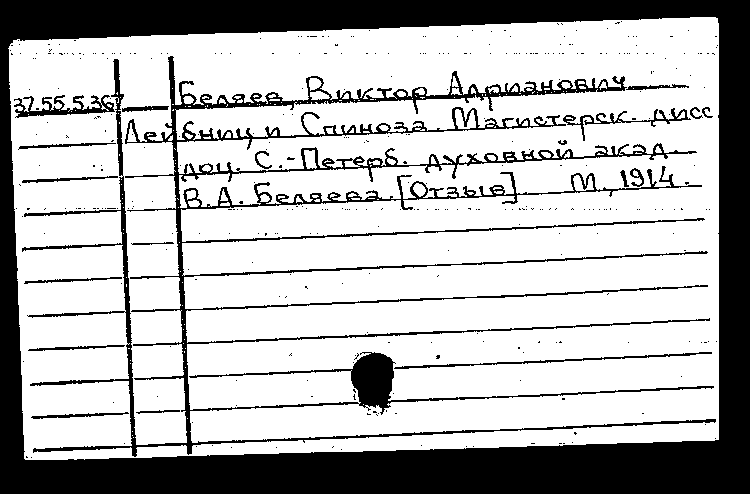 37.55.5.367 Беляев, Виктор Адрианович
Лейбниц и Спиноза. Магистерск. дисс
доц. С.-Петерб. духовной акад.
В.А. Беляева. [Отзыв] М., 1914.